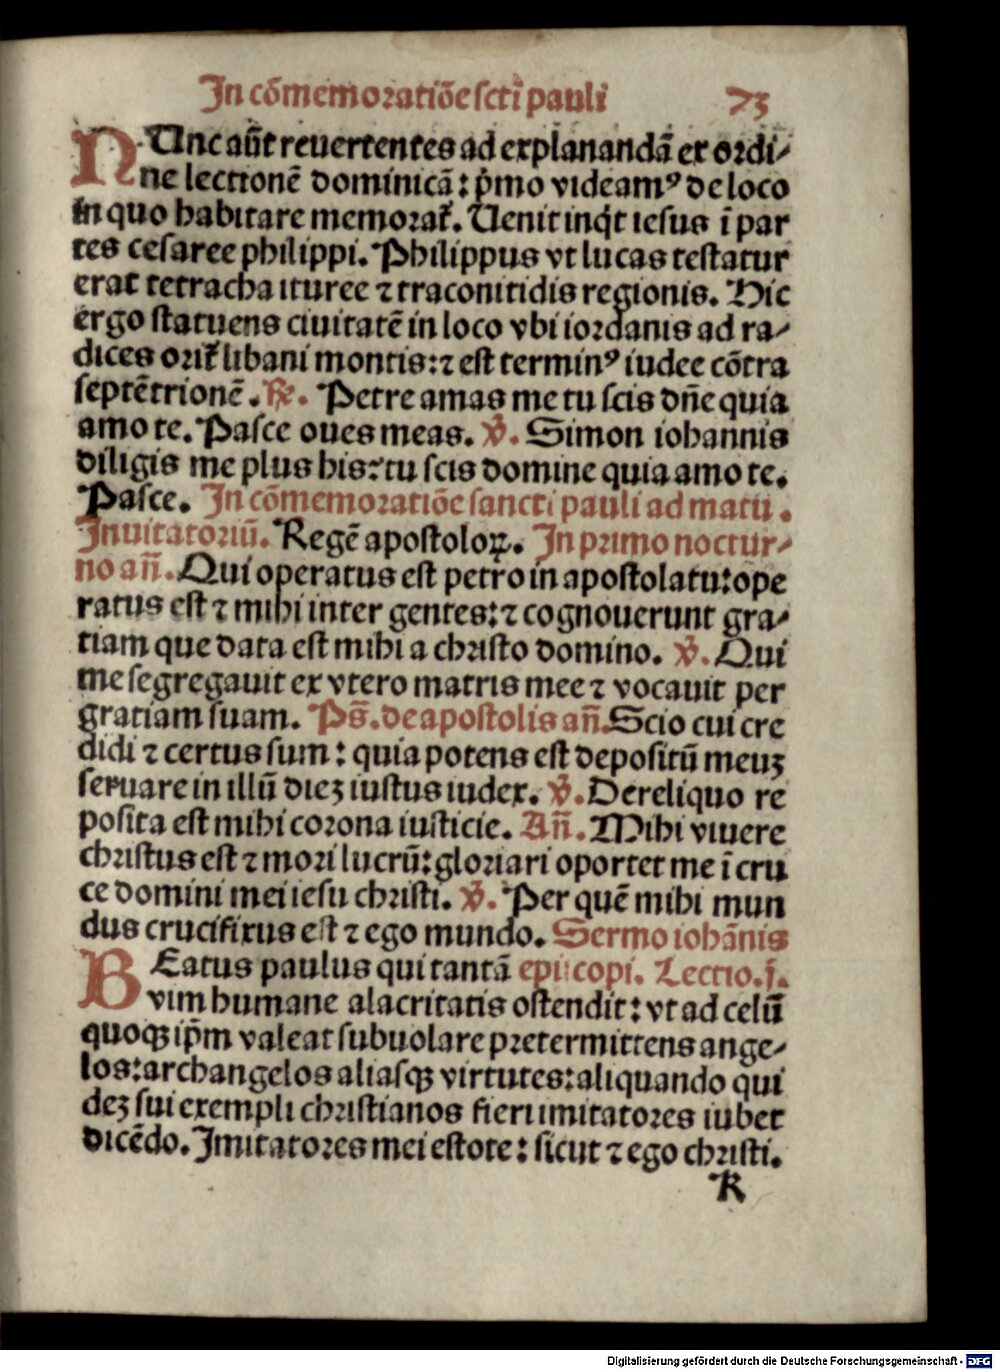 In cōmemoratiōe scti pauli 73
NUnc aūt reuertentes ad explanandā ex ordi⸗
ne lectionē dominicā: p̄mo videamꝰ de loco
in quo habitare memorat᷑. Uenit inq̇t iesus ī par
tes cesaree philippi. Philippus vt lucas testatur
erat tetracha ituree ⁊ traconitidis regionis. Hic
ergo statuens ciuitatē in loco vbi iordanis ad ra⸗
dices orit᷑ libani montis: ⁊ est terminꝰ iudee cōtra
septētrionē. ℟. Petre amas me tu scis dn̄e quia
amo te. Pasce oues meas. ℣. Simon iohannis
diligis me plus his: tu scis domine quia amo te.
Pasce. In cōmemoratiōe sancti pauli ad matu.
Inuitatoriū. Regē apostoloꝝ. In primo noctur⸗
no an̄. Qui operatus est petro in apostolatu: ope
ratus est ⁊ mihi inter gentes: ⁊ cognouerunt gra⸗
tiam que data est mihi a christo domino. ℣. Qui
me segregauit ex vtero matris mee ⁊ vocauit per
gratiam suam. Ps̄. de apostolis an̄. Scio cui cre
didi ⁊ certus sum: quia potens est depositū meuꝫ
seruare in illū dieꝫ iustus iudex. ℣. Dereliquo re
posita est mihi corona iusticie. An̄. Mihi viuere
christus est ⁊ mori lucrū: gloriari oportet me ī cru
ce domini mei iesu christi. ℣. Per quē mihi mun
dus crucifixus est ⁊ ego mundo. Sermo iohānis
BEatus paulus qui tantā episcopi. Lectio. j.
vim humane alacritatis ostendit: vt ad celū
quoqꝫ ip̄m valeat subuolare pretermittens ange⸗
los: archangelos aliasqꝫ virtutes: aliquando qui
deꝫ sui exempli christianos fieri imitatores iubet
dicēdo. Imitatores mei estote: sicut ⁊ ego christi.
K
Digitalisierung gefördert durch die Deutsche Forschungsgemeinschaft - DFG